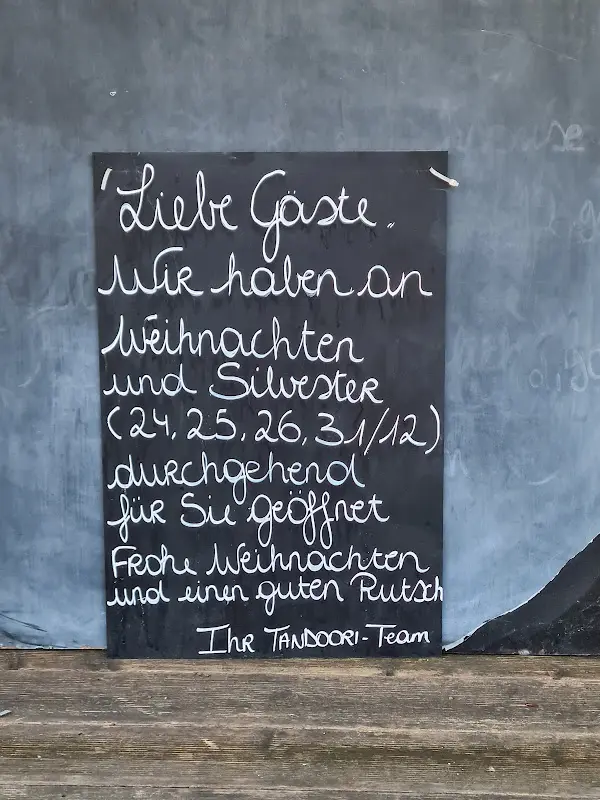 Liebe Gäste,
Wir haben an
Weihnachten
und Silvester
(24, 25, 26, 31/12)
durchgehend
für Sie geöffnet
Frohe Weihnachten
und einen guten Rutsch
Ihr TANDOORI-Team